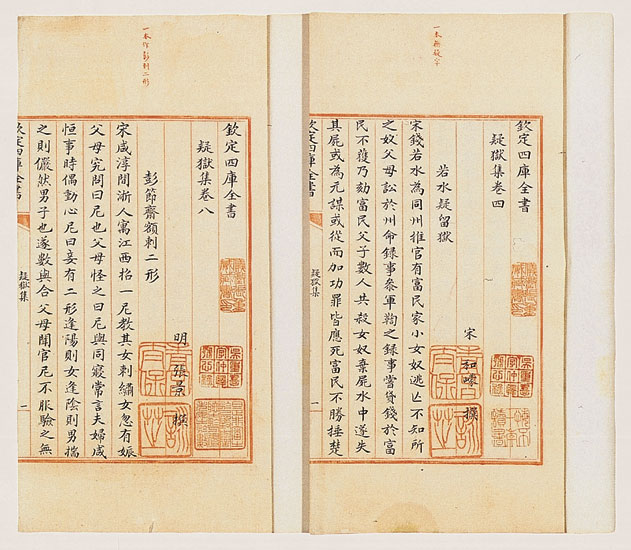 一本無疑字
欽定四庫全書
疑獄集卷四
宋 和㠓 撰
若水疑留獄
宋錢若水為同州推官有富民家小女奴逃亡不知所
之奴父母訟於州命録事叅軍鞫之録事嘗貸錢於富
民不獲乃劾富民父子數人共殺女奴棄屍水中遂失
其屍或為元謀或從而加功罪皆應死富民不勝捶楚
欽定四庫全書
疑獄集
一
一本作彭刺二形
欽定四庫全書
疑獄集卷八
明 張景 撰
彭節齋額刺二形
宋咸淳間浙人寓江西招一尼教其女刺繡女忽有娠
父母究問曰尼也父母怪之曰尼與同寢常言夫婦咸
恒事時偶動心尼曰妾有二形逢陽則女逢陰則男揣
之則儼然男子也遂數與合父母聞官尼不服驗之無
欽定四庫全書
疑獄集
一